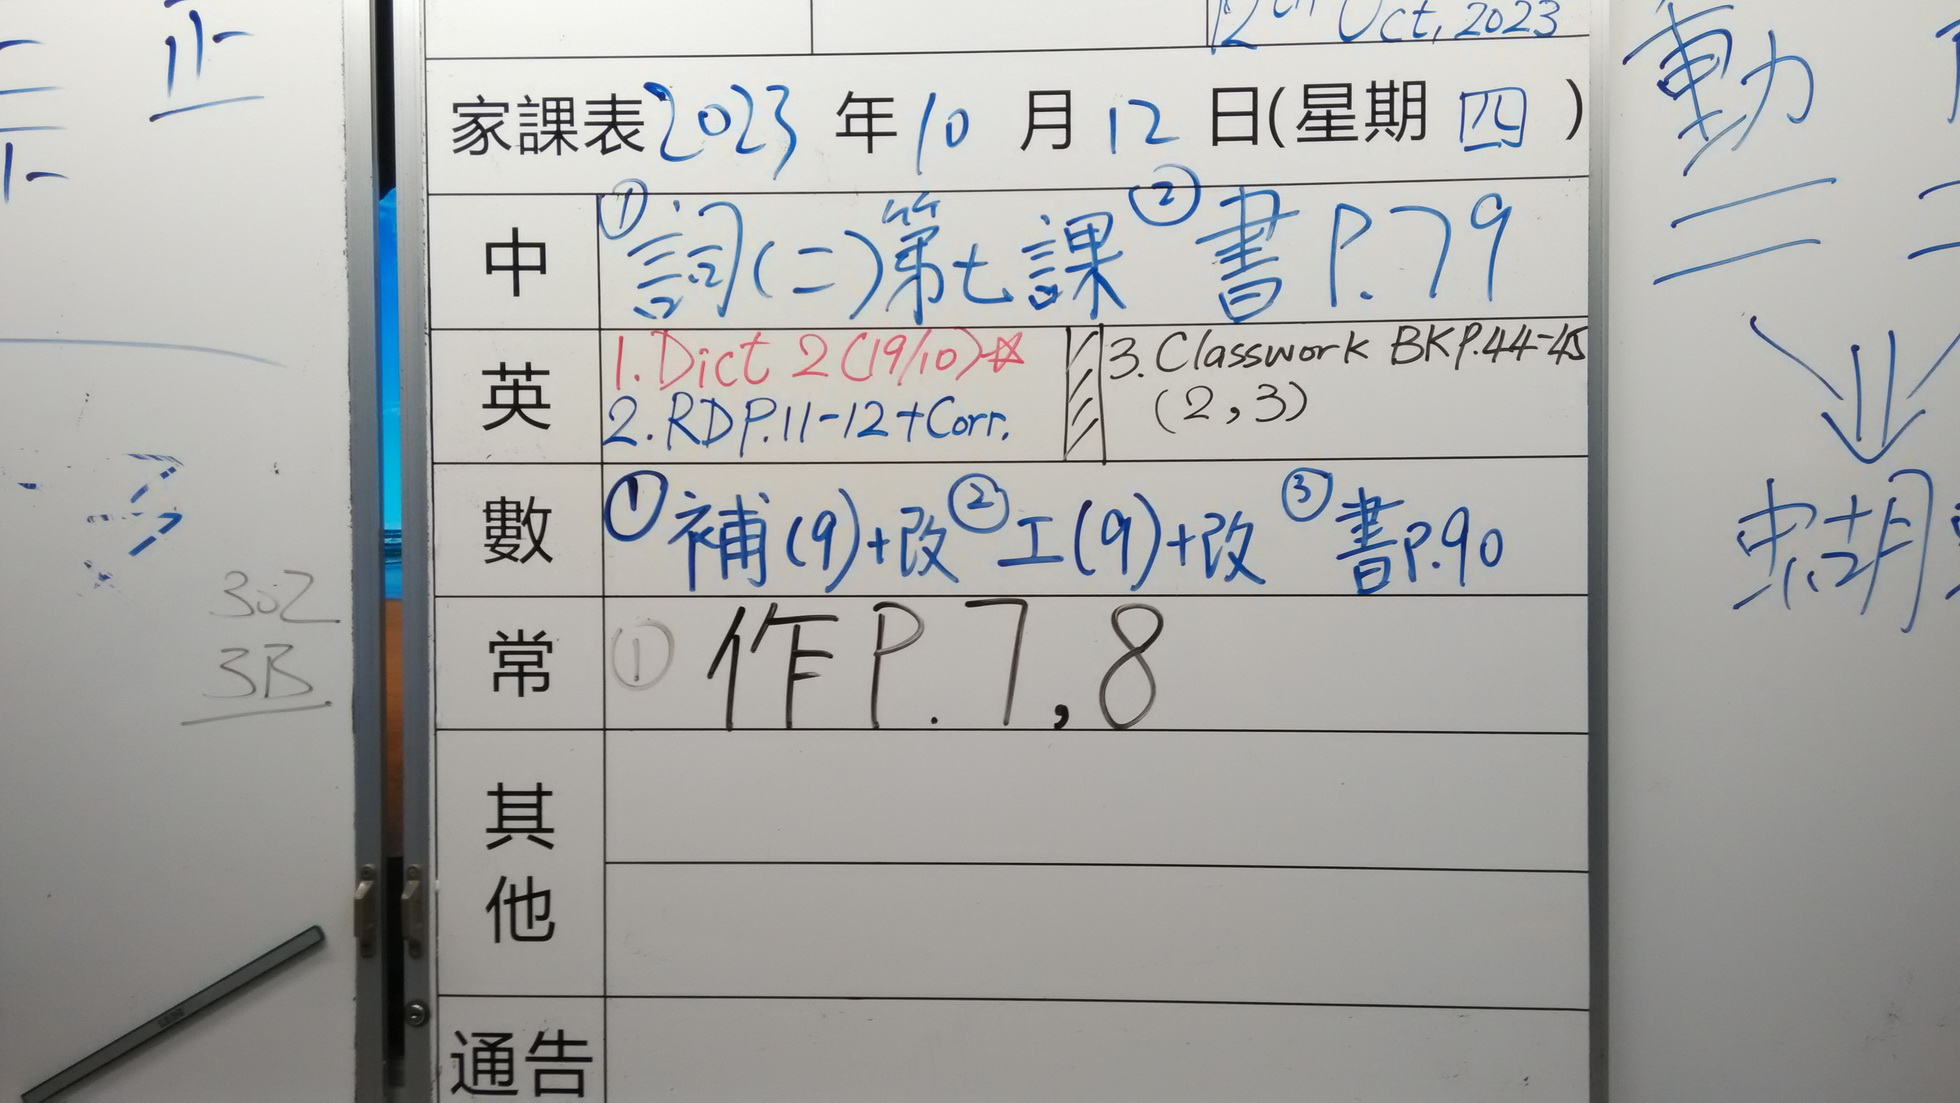 正
12th Oct, 2023
家課表 2023 年 10 月 12 日(星期 四 )
中 ① 詞(二)第七課 ② 書 P.79
英 1. Dict 2 (19/10) ☆
2. RD P.11-12 + Corr.
3. Classwork BK P.44-45
(2, 3)
數 ① 補(9)+改 ② 工(9)+改 ③ 書P.90
常 ① 作 P.7, 8
其他
通告
302
3B
動